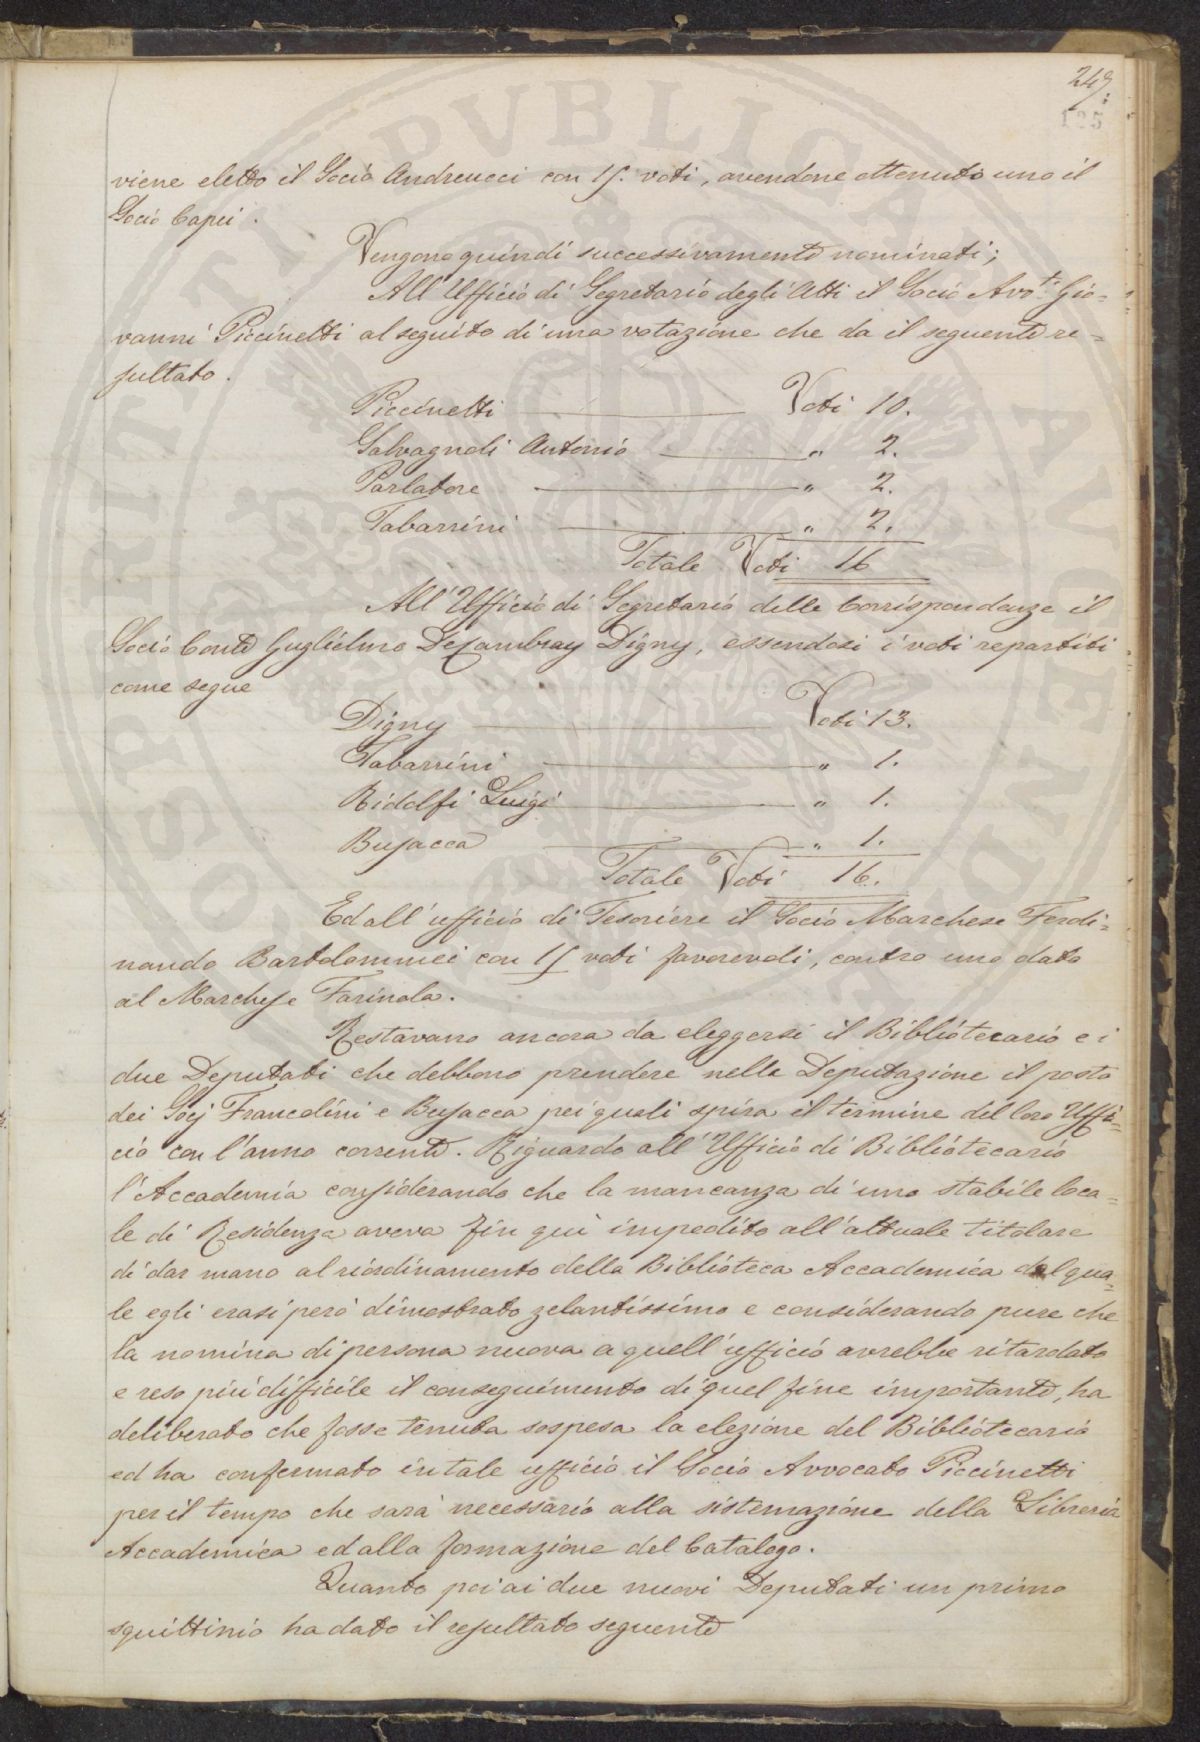 249.
125
viene eletto il Socio Andreucci con 15. voti, avendone ottenuto uno il
Socio Capei.
Vengono quindi successivamente nominati;
All'Ufficio di Segretario degli Atti il Socio Avv.to Gio=
vanni Piccinetti al seguito di una votazione che da il seguente re=
sultato.
Piccinetti Voti 10.
Salvagnoli Antonio " 2.
Parlatore " 2.
Tabarrini " 2.
Totale Voti 16
All'Ufficio di Segretario delle Corrispondenze il
Socio Conte Guglielmo DeCambray Digny, essendosi i voti repartiti
come segue
Digny Voti 13.
Tabarrini " 1.
Ridolfi Luigi " 1.
Busacca " 1.
Totale Voti 16.
Ed all'ufficio di Tesoriere il Socio Marchese Ferdi=
nando Bartolommei con 15 voti favorevoli, contro uno dato
al Marchese Farinola.
Restavano ancora da eleggersi il Bibliotecario e i
due Deputati che debbono prendere nella Deputazione il posto
dei Socj Francolini e Busacca pei quali spira il termine del loro Uffi=
cio con l'anno corrente. Riguardo all'Ufficio di Bibliotecario
l'Accademia considerando che la mancanza di uno stabile loca=
le di Residenza aveva fin quì impedito all'attuale titolare
di dar mano al riordinamento della Biblioteca Accademica del qua=
le egli erasi però dimostrato zelantissimo e considerando pure che
la nomina di persona nuova a quell'ufficio avrebbe ritardato
e reso più difficile il conseguimento di quel fine importante, ha
deliberato che fosse tenuta sospesa la elezione del Bibliotecario
ed ha confermato in tale ufficio il Socio Avvocato Piccinetti
per il tempo che sarà necessario alla sistemazione della Libreria
Accademica ed alla formazione del Catalogo.
Quanto poi ai due nuovi Deputati un primo
squittinio ha dato il resultato seguente